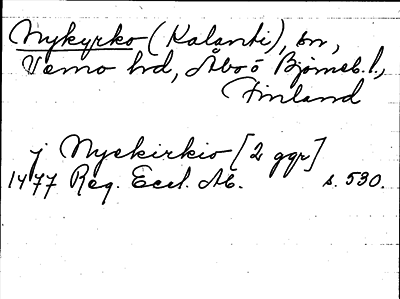 Nykyrko (Kalånti), sn,
Vemo hd, Åbo o Björneb. l.,
Finland
j Nyekirkio [2 ggr]
1477 Reg. Eccl. Ab. s. 530.